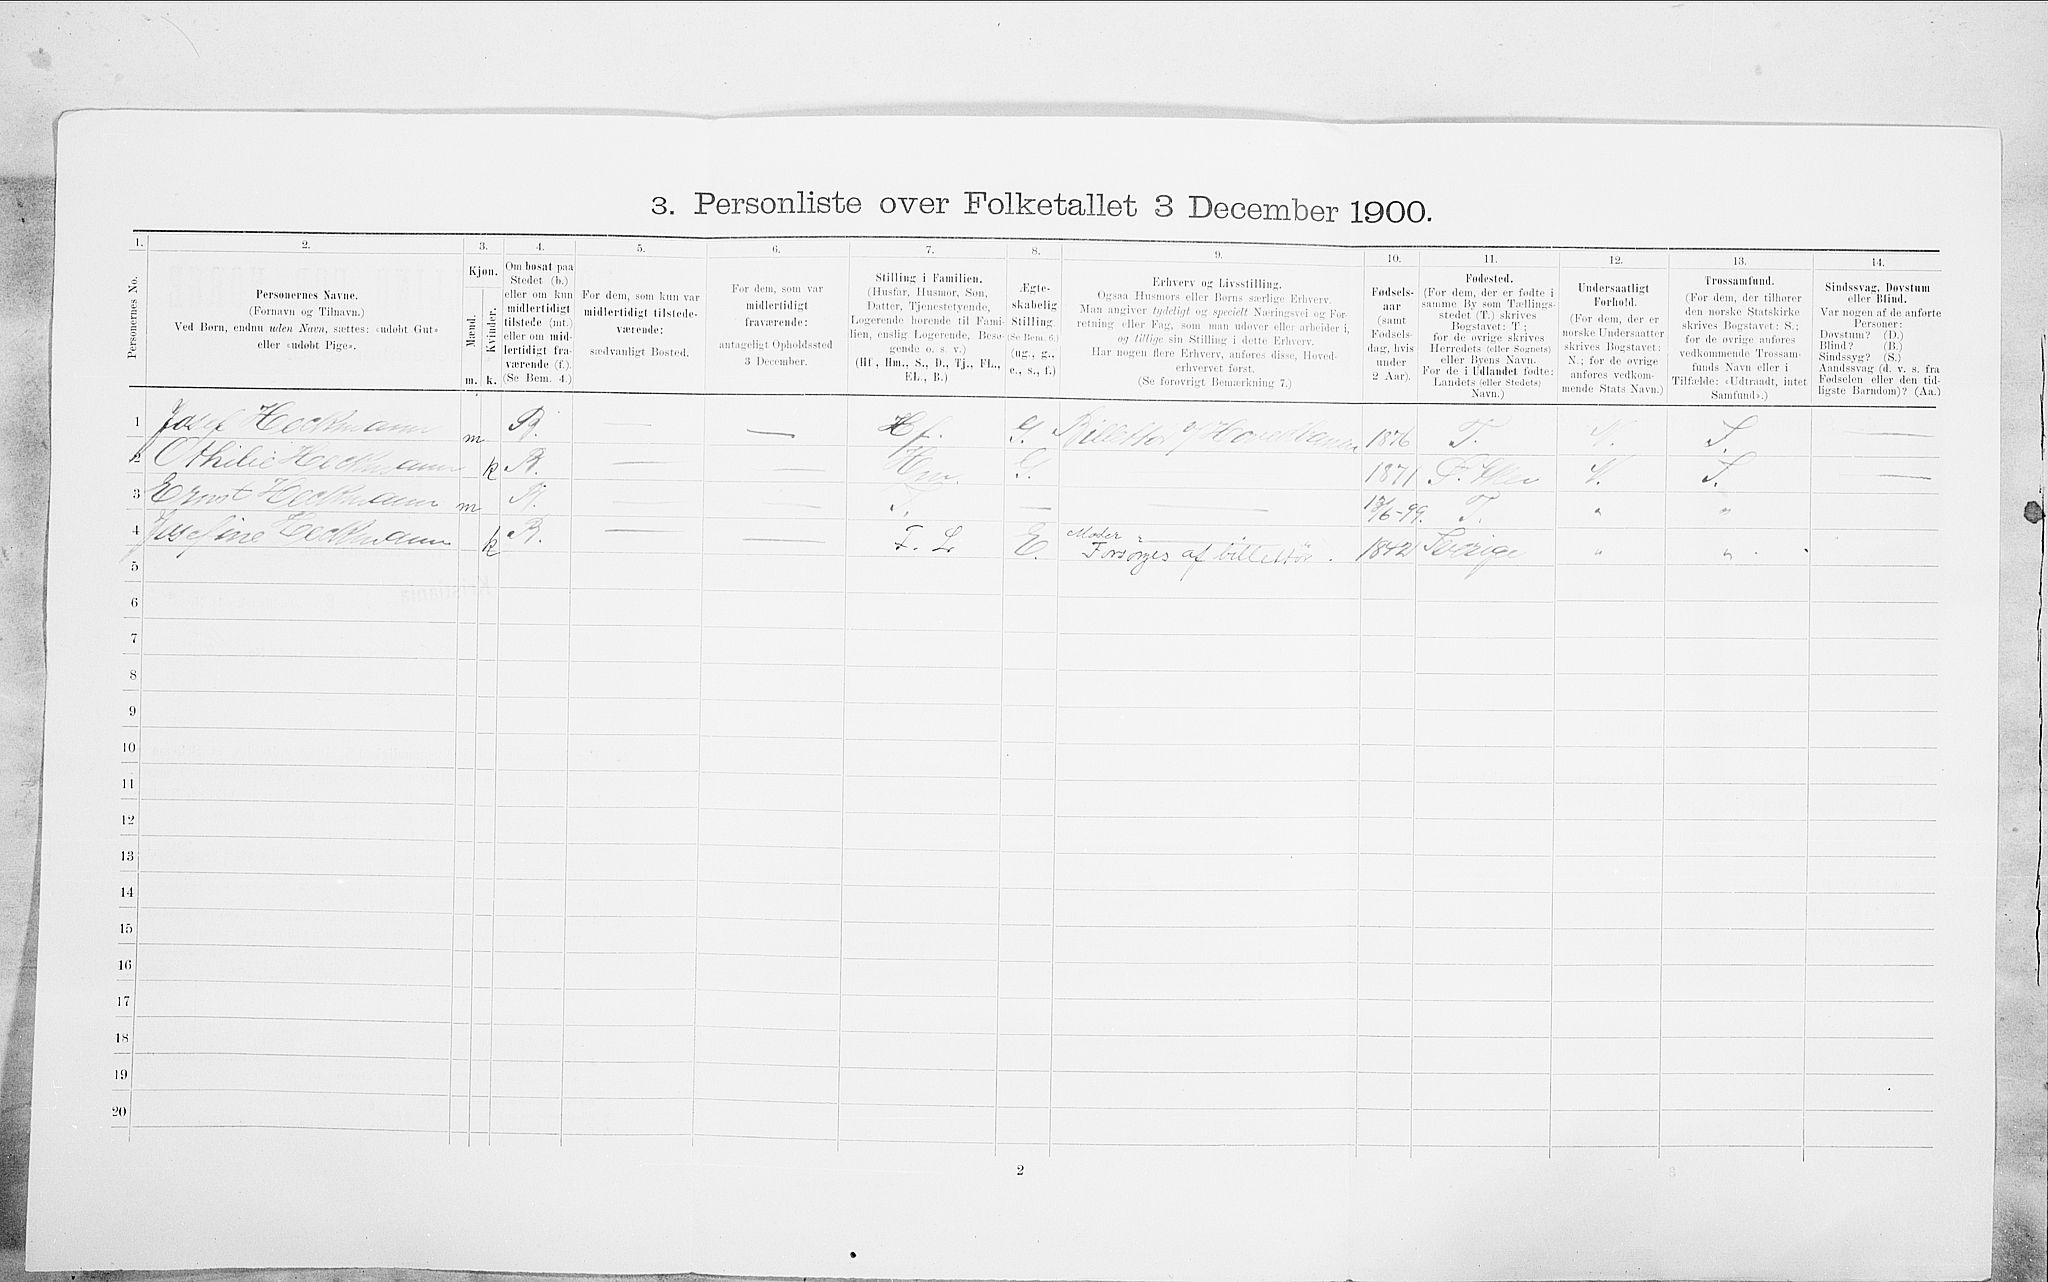 3. Personliste over Folketallet 3 December 1900.
1. 2. 3. 4. 5. 6. 7. 8. 9. 10. 11. 12. 13. 14.
Personernes No.
Personernes Navne.
(Fornavn og Tilnavn.)
Ved Børn, endnu uden Navn, sættes: «udøbt Gut»
eller «udøbt Pige».
Kjøn.
Mænd.
Kvinder.
m. k.
Om bosat paa
Stedet (b.)
eller om kun
midlertidigt
tilstede (mt.)
eller om mid-
lertidigt fra-
værende (f.).
(Se Bem. 4.)
For dem, som kun var
midlertidigt tilstede-
værende:
sædvanligt Bosted.
For dem, som var
midlertidigt
fraværende:
antageligt Opholdssted
3 December.
Stilling i Familien.
(Husfar, Husmor, Søn,
Datter, Tjenestetyende,
Logerende hørende til Fami-
lien, enslig Logerende, Besø-
gende o. s. v.)
(Hf., Hm., S., D., Tj., FL.,
EL., B.)
Ægte-
skabelig
Stilling.
(Se Bem. 6.)
(ug., g.,
e., s., f.)
Erhverv og Livsstilling.
Ogsaa Husmors eller Børns særlige Erhverv.
Man angiver tydeligt og specielt Næringsvei og For-
retning eller Fag, som man udøver eller arbeider i,
og tillige sin Stilling i dette Erhverv.
Har nogen flere Erhverv, anføres disse, Hoved-
erhvervet først.
(Se forøvrigt Bemærkning 7.)
Fødsels-
aar
(samt
Fødsels-
dag, hvis
under
2 Aar).
Fødested.
(For dem, der er fødte i
samme By som Tællings-
stedet (T.) skrives
Bogstavet: T;
for de øvrige skrives
Herredets (eller Sognets)
eller Byens Navn.
For de i Udlandet fødte:
Landets (eller Stedets)
Navn.)
Undersaatligt
Forhold.
(For dem, der er
norske Undersaatter
skrives Bogstavet:
N.; for de øvrige
anføres vedkom-
mende Stats Navn.)
Trossamfund.
(For dem, der tilhører
den norske Statskirke
skrives Bogstavet: S.;
for de øvrige anføres
vedkommende Trossam-
funds Navn eller i
Tilfælde: «Udtraadt, intet
Samfund».)
Sindssvag, Døvstum
eller Blind.
Var nogen af de anførte
Personer:
Døvstum? (D.)
Blind? (B.)
Sindssyg? (S.)
Aandssvag (d. v. s. fra
Fødselen eller den tid-
ligste Barndom)? (Aa.)
1 Josef Heckmann m B. — — Hf. G. Billettør 1876 T. N. S. —
2 Othilie Heckmann k B. — — Hm. G. 1871 N. S. —
3 Ernst Heckmann m B. — — — — 13/6-99. T. " "
4 Josefine Heckmann k B. — — F. L. E. Moder
Forsørges af billettør. 1842 Sverige " "
5
6
7
8
9
10
11
12
13
14
15
16
17
18
19
20
2